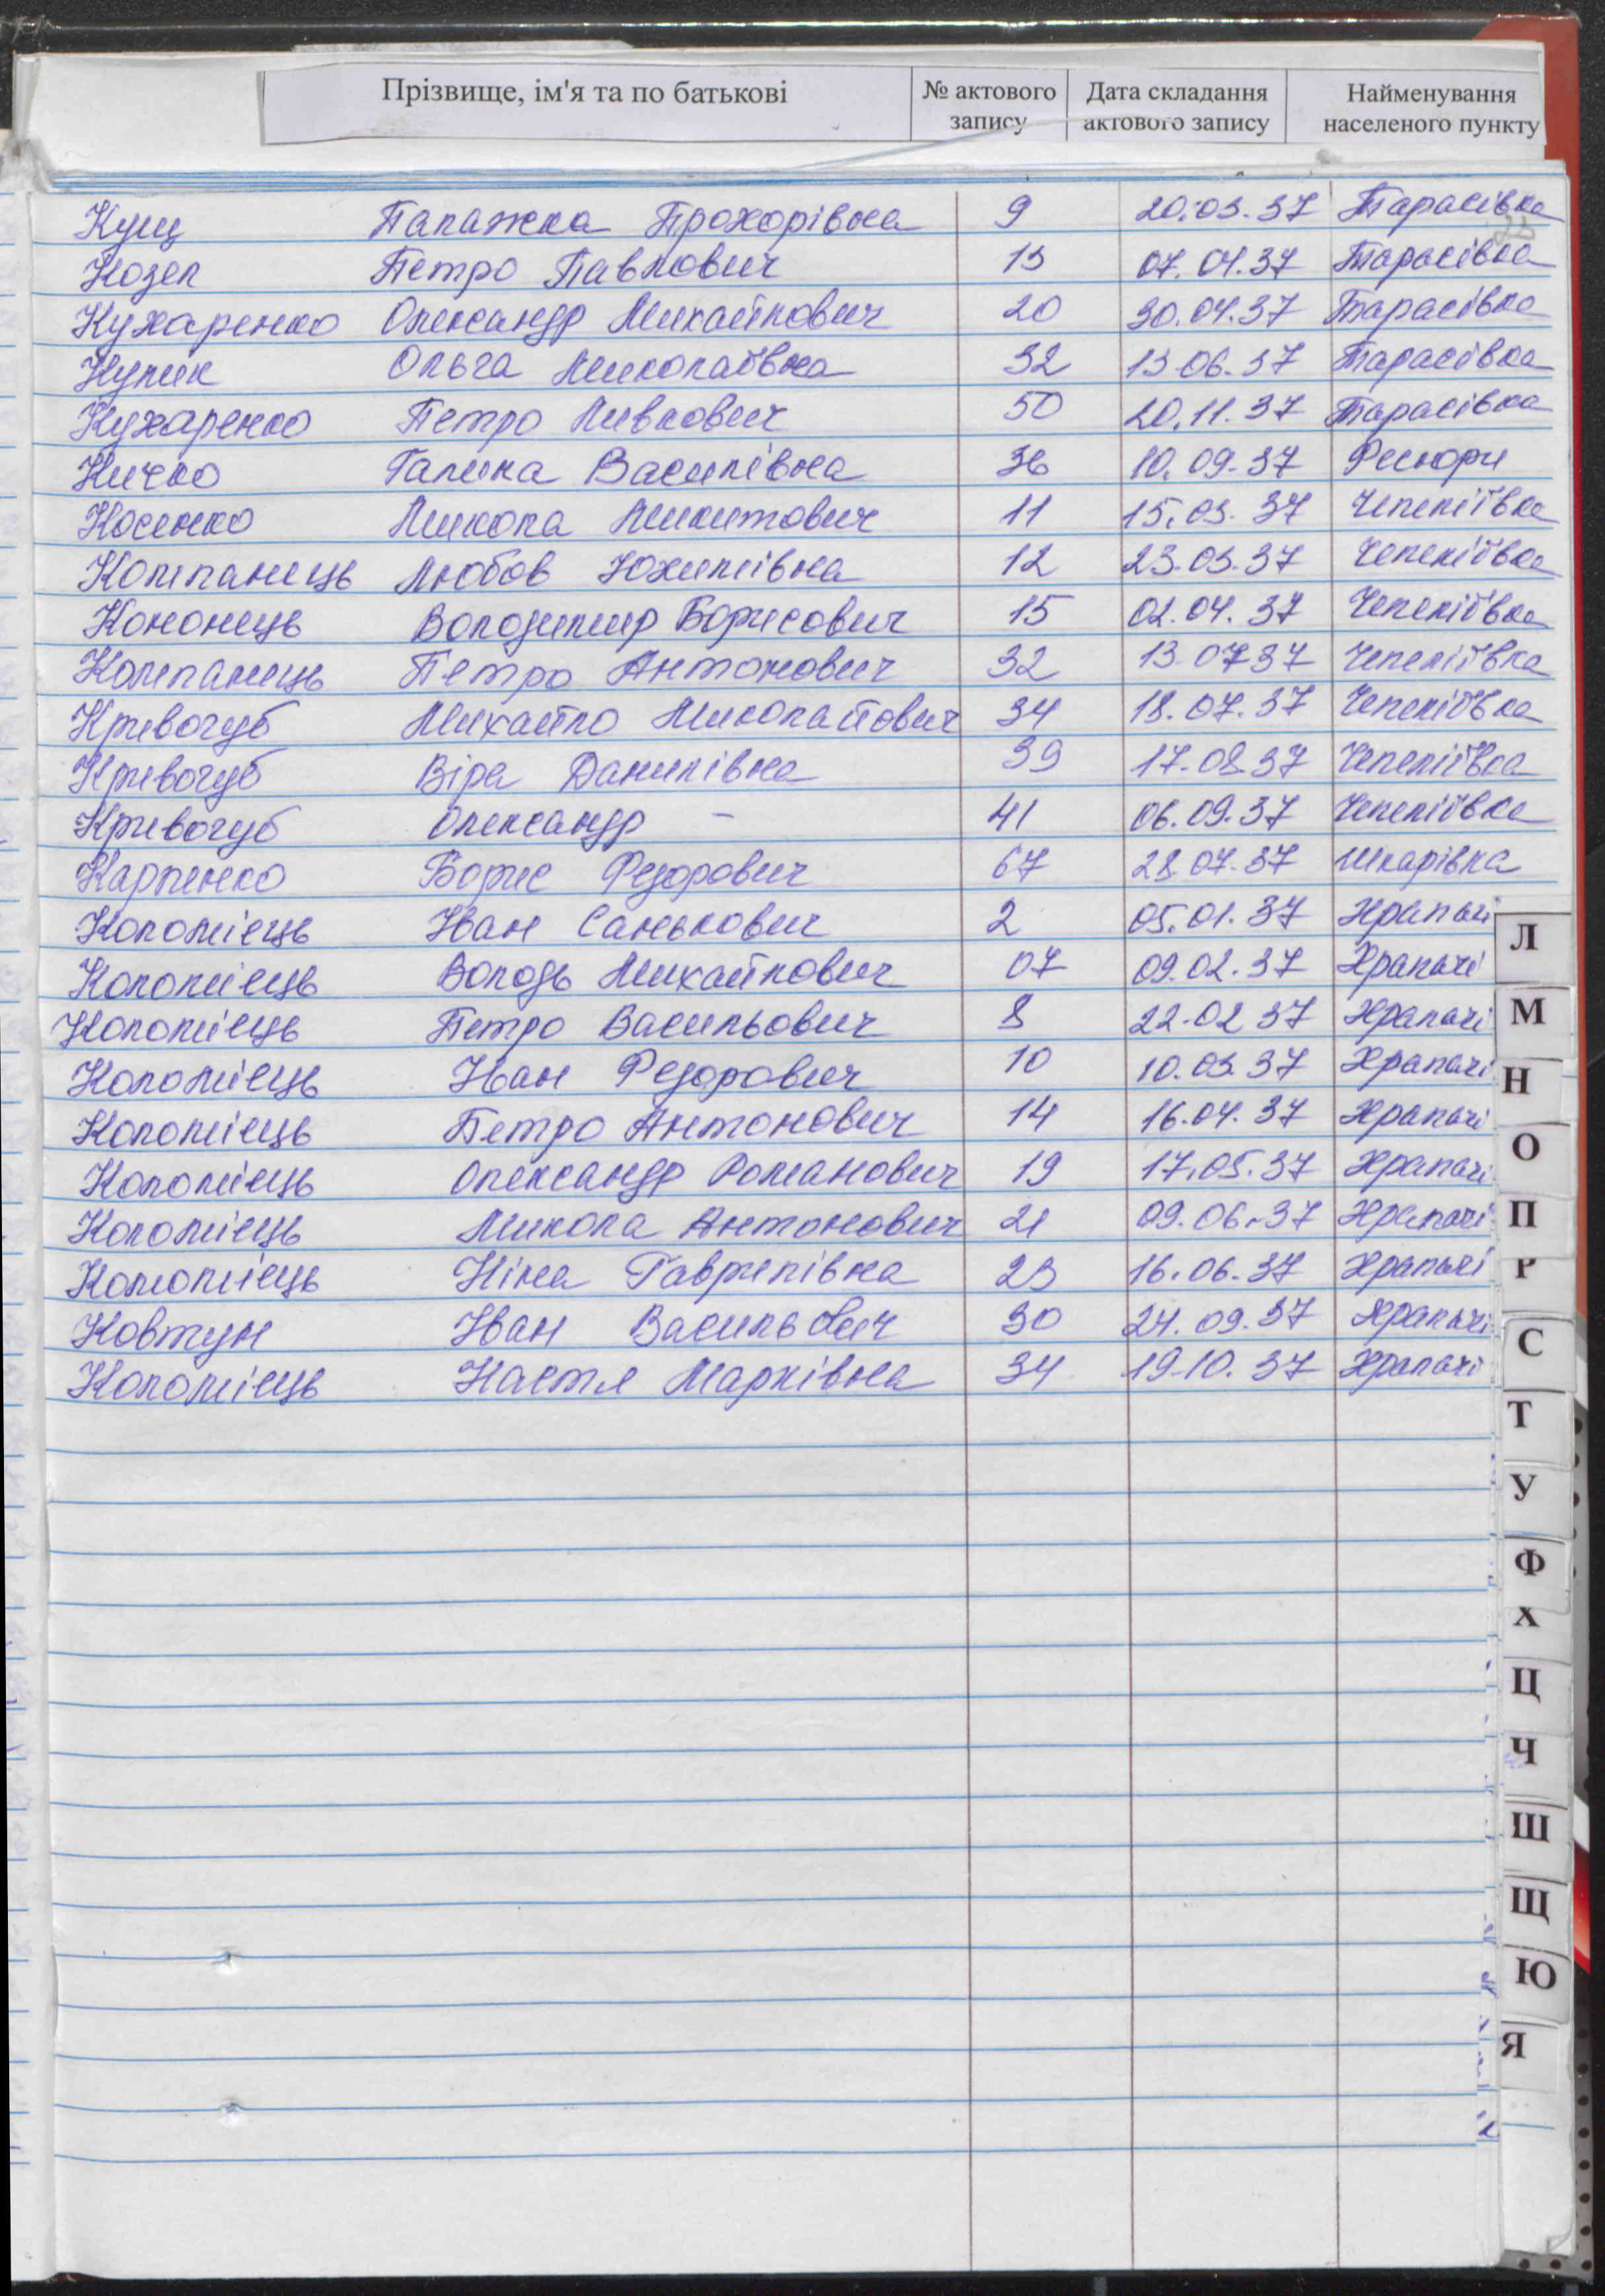 Прізвище, ім'я та по батькові № актового запису Дата складання актового запису Найменування населеного пункту
Кущ Палажка Прохорівна 9 20.03.37 Тарасівка
Козел Петро Павлович 13 07.04.37 Тарасівка
Кухаренко Олександр Михайлович 20 30.04.37 Тарасівка
Кулик Ольга Миколаївна 32 13.06.37 Тарасівка
Кухаренко Петро Павлович 50 20.11.37 Тарасівка
Кичко Галина Василівна 36 10.09.37 Фесюри
Косенко Микола Микитович 11 15.03.37 Чепеліївка
Компанець Любов Юхимівна 12 23.03.37 Чепеліївка
Кононець Володимир Борисович 15 02.04.37 Чепеліївка
Компанець Петро Антонович 32 13.07.37 Чепеліївка
Кривогуб Михайло Миколайович 34 18.07.37 Чепеліївка
Кривогуб Віра Данилівна 39 17.08.37 Чепеліївка
Кривогуб Олександр - 41 06.09.37 Чепеліївка
Карпенко Борис Федорович 67 28.07.37 Шкарівка
Коломієць Іван Санькович 2 05.01.37 Храпачі
Коломієць Володь Михайлович 07 09.02.37 Храпачі
Коломієць Петро Васильович 8 22.02.37 Храпачі
Коломієць Іван Федорович 10 10.03.37 Храпачі
Коломієць Петро Антонович 14 16.04.37 Храпачі
Коломієць Олександр Романович 19 17.05.37 Храпачі
Коломієць Микола Антонович 21 09.06.37 Храпачі
Коломієць Ніна Гаврилівна 23 16.06.37 Храпачі
Ковтун Іван Васильович 30 24.09.37 Храпачі
Коломієць Настя Марківна 34 19.10.37 Храпачі
Л
М
Н
О
П
Р
С
Т
У
Ф
Х
Ц
Ч
Ш
Щ
Ю
Я